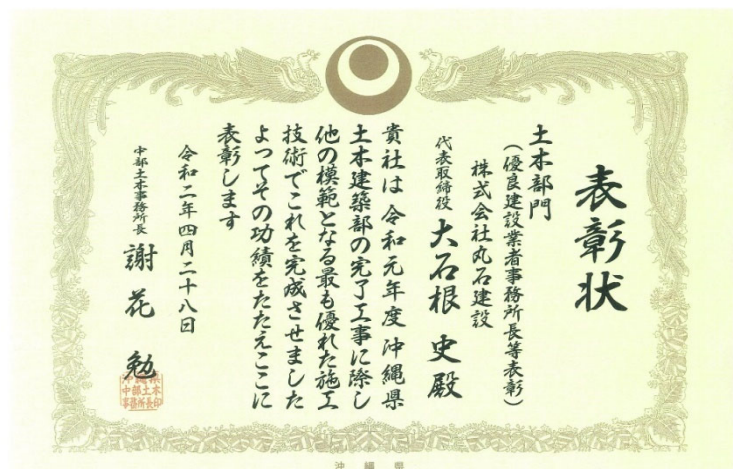 表彰状
土木部門
（優良建設業者事務所長等表彰）
株式会社丸石建設
代表取締役 大石根 史殿
貴社は 令和元年度 沖縄県
土木建築部の完了工事に際し
他の模範となる最も優れた施工
技術でこれを完成させました
よってその功績をたたえここに
表彰します
令和二年四月二十八日
中部土木事務所長 謝花 勉
沖縄県
中部土木
事務所長印
沖縄県